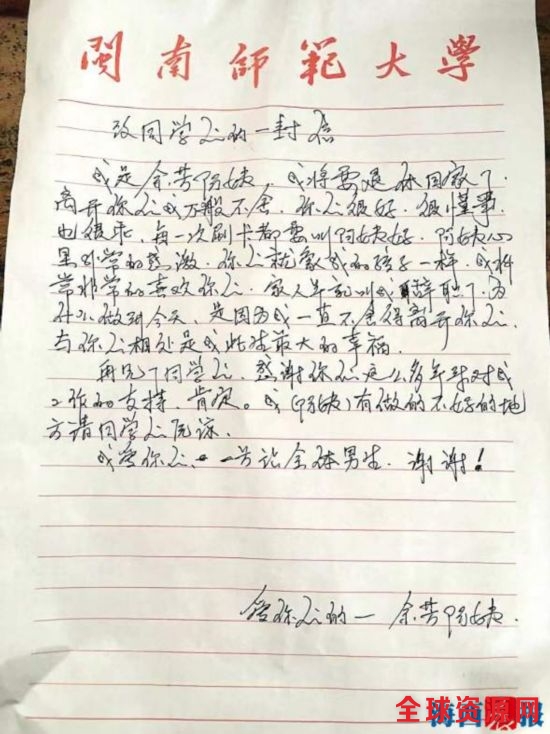 閩南師範大學
致同学们的一封信
我是余芳阿姨,我将要退休回家了.
离开你们我万般不舍.你们很好.很懂事
也很乖,每一次刷卡都要叫阿姨好.阿姨心
里非常的感激.你们就象我的孩子一样.我非
常非常的喜欢你们.家人早就叫我辞职了.为
什么做到今天,是因为我一直不舍得离开你们.
与你们相处是我此生最大的幸福.
再见了同学们.感谢你们这么多年来对我
工作的支持.肯定.我(阿姨)有做的不好的地
方请同学们原谅.
我爱你们 一号论全体男生.谢谢!
你们的一 余芳阿姨.
全球资源网
海西晨报